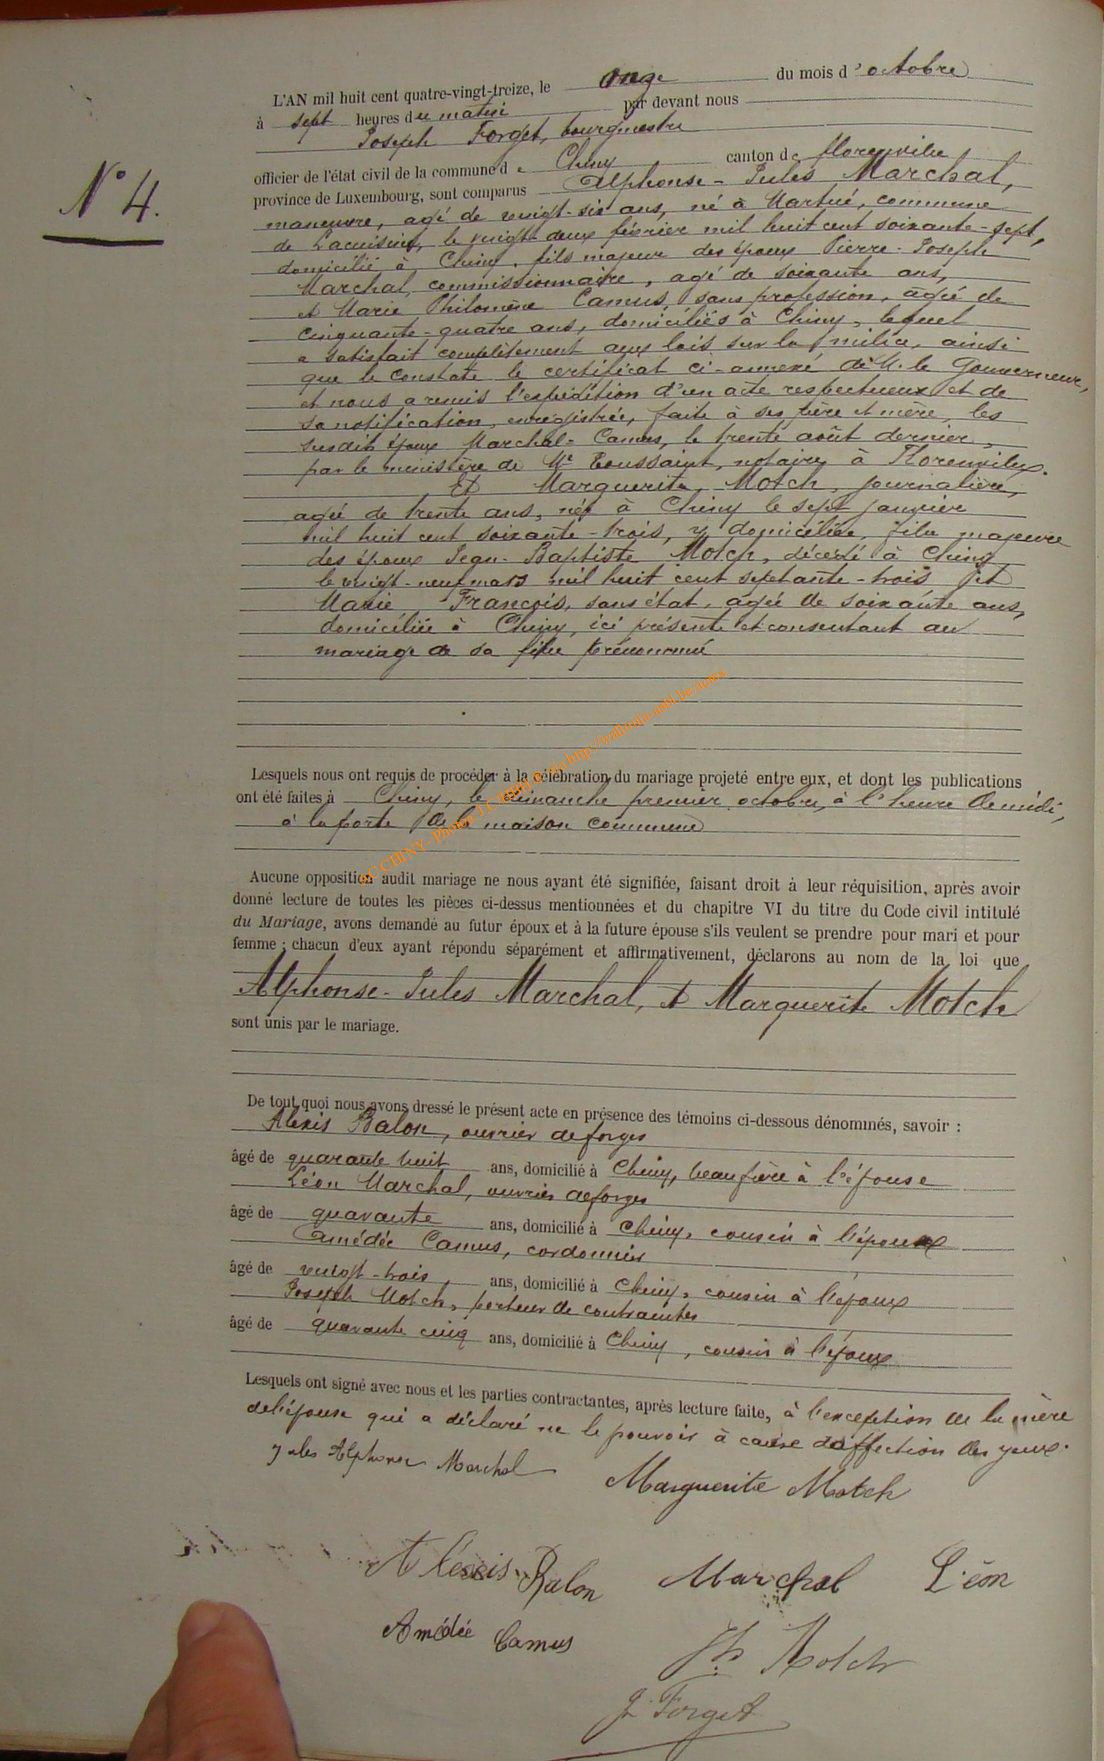 N° 4.
L'AN mil huit cent quatre-vingt-treize, le onze du mois d'octobre
à sept heures du matin par devant nous
Joseph Forget, bourgmestre
officier de l'état civil de la commune de Chiny canton de florenville
province de Luxembourg, sont comparus Alphonse-Jules Marchal,
manœuvre, agé de vingt-six ans, né à Martué, commune
de Lacuisine, le vingt deux février mil huit cent soixante-sept,
domicilié à Chiny, fils majeur des époux Pierre-Joseph
Marchal, commissionnaire, agé de soixante ans,
et Marie Philomène Camus, sans profession, agée de
cinquante-quatre ans, domiciliés à Chiny, lequel
a satisfait complètement aux lois sur la milice, ainsi
que le constate le certificat ci-annexé de M. le Gouverneur,
et nous a remis l'expédition d'un acte respectueux et de
sa notification, enregistrée, faite à ses père et mère, les
susdits époux Marchal-Camus, le trente août dernier,
par le ministère de Me Toussaint, notaire, à Florenville.
Et Marguerite Motch, journalière,
agée de trente ans, née à Chiny le sept janvier
mil huit cent soixante-trois, y domiciliée, fille majeure
des époux Jean-Baptiste Motch, décédé à Chiny
le vingt-neuf mars mil huit cent septante-trois et
Marie François, sans état, agée de soixante ans,
domiciliée à Chiny, ici présente et consentant au
mariage de sa fille prénommé
Lesquels nous ont requis de procéder à la célébration du mariage projeté entre eux, et dont les publications
ont été faites à Chiny, le dimanche premier octobre, à l'heure de midi,
à la porte de la maison commune
Aucune opposition audit mariage ne nous ayant été signifiée, faisant droit à leur réquisition, après avoir
donné lecture de toutes les pièces ci-dessus mentionnées et du chapitre VI du titre du Code civil intitulé
du Mariage, avons demandé au futur époux et à la future épouse s'ils veulent se prendre pour mari et pour
femme ; chacun d'eux ayant répondu séparément et affirmativement, déclarons au nom de la loi que
Alphonse-Jules Marchal, et Marguerite Motch
sont unis par le mariage.
De tout quoi nous avons dressé le présent acte en présence des témoins ci-dessous dénommés, savoir :
Alexis Balon, ouvrier de forges
âgé de quarante huit ans, domicilié à Chiny, beaufrère à l'épouse
Léon Marchal, ouvrier de forges
âgé de quarante ans, domicilié à Chiny, cousin à l'époux
Amédée Camus, cordonnier
âgé de vingt-trois, ans, domicilié à Chiny, cousin à l'époux
Joseph Motch, porteur de contraintes
âgé de quarante cinq ans, domicilié à Chiny, cousin à l'époux
Lesquels ont signé avec nous et les parties contractantes, après lecture faite, à l'exception de la mère
de l'épouse qui a déclaré ne le pouvoir à cause d'affection des yeux.
Jules Alphonse Marchal Marguerite Motch
Alexis Balon Marchal Léon
Amédée Camus
Jh Motch
J. Forget